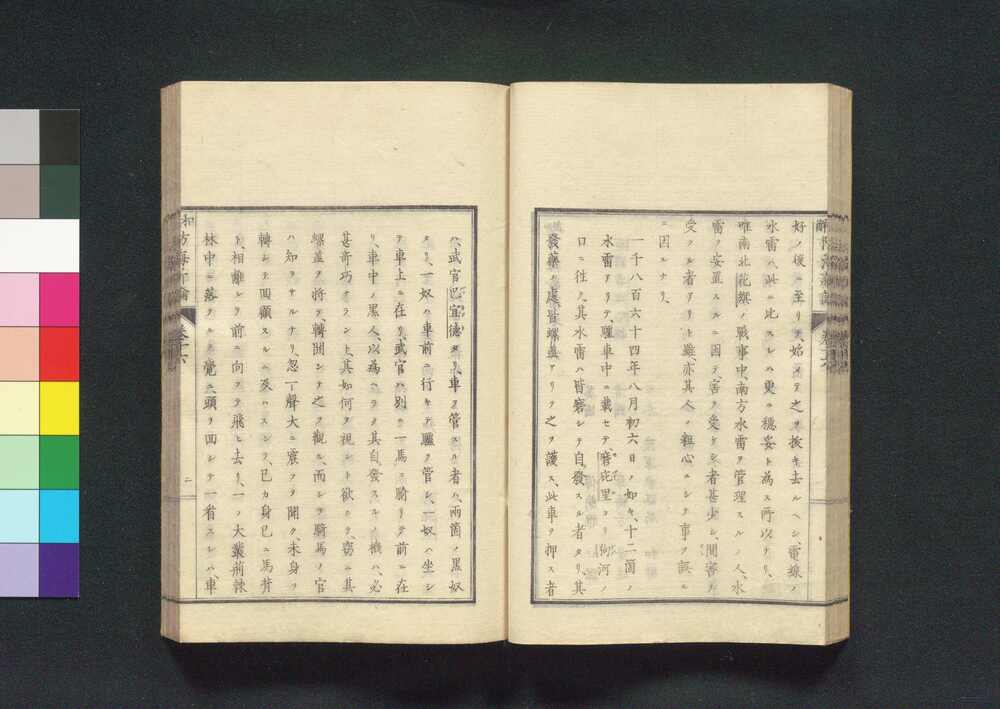 好ノ後ニ至リテ、始メテ之ヲ拔キ去ルヘシ、電線ノ
水雷ハ、此ニ比スレハ更ニ穩妥ト為ス所以ナリ、
唯南北花旗ノ戰事中、南方水雷ヲ管理スルノ人、水
雷ヲ安置スルニ因テ、害ヲ受ケシ者甚少シ、間害ヲ
受クル者アリト雖、亦其人ノ粗心ニシテ事ヲ誤ル
ニ因ルナリ、
一千八百六十四年八月初六日ノ如キ、十二箇ノ
水雷アリテ、騾車中ニ載セテ磨庇里ヨリ狗河ノ
口ニ往ク、其水雷ハ皆磨シテ自發スル者タリ、其
發藥ノ處、皆螺蓋アリテ之ヲ護ス、此車ヲ押ス者
ハ、武官巴宜德タリ、車ヲ管スル者ハ、兩箇ノ黑奴
タリ、一奴ハ車前ニ行キテ騾ヲ管シ、一奴ハ坐シ
テ車上ニ在リ、武官ハ別ニ一馬ニ騎リテ前ニ在
リ、車中ノ黑人、以為ヘラク其自發スルノ機ハ、必
甚奇巧ナラント、其如何ヲ視ント欲シテ、竊ニ其
螺蓋ヲ將テ、轉開シテ之ヲ觀ル、而シテ騎馬ノ官
ハ知ラサルナリ、忽一聲大ニ震フヲ聞ク、未身ヲ
轉シテ回顧スルニ及ハスシテ、已カ身已ニ馬背
ト相離レ、前ニ向ヲテ飛ヒ去リ、一ノ大叢荊棘
林中ニ落ツルヲ覺ユ、頭ヲ回シテ一看スレハ、車
二